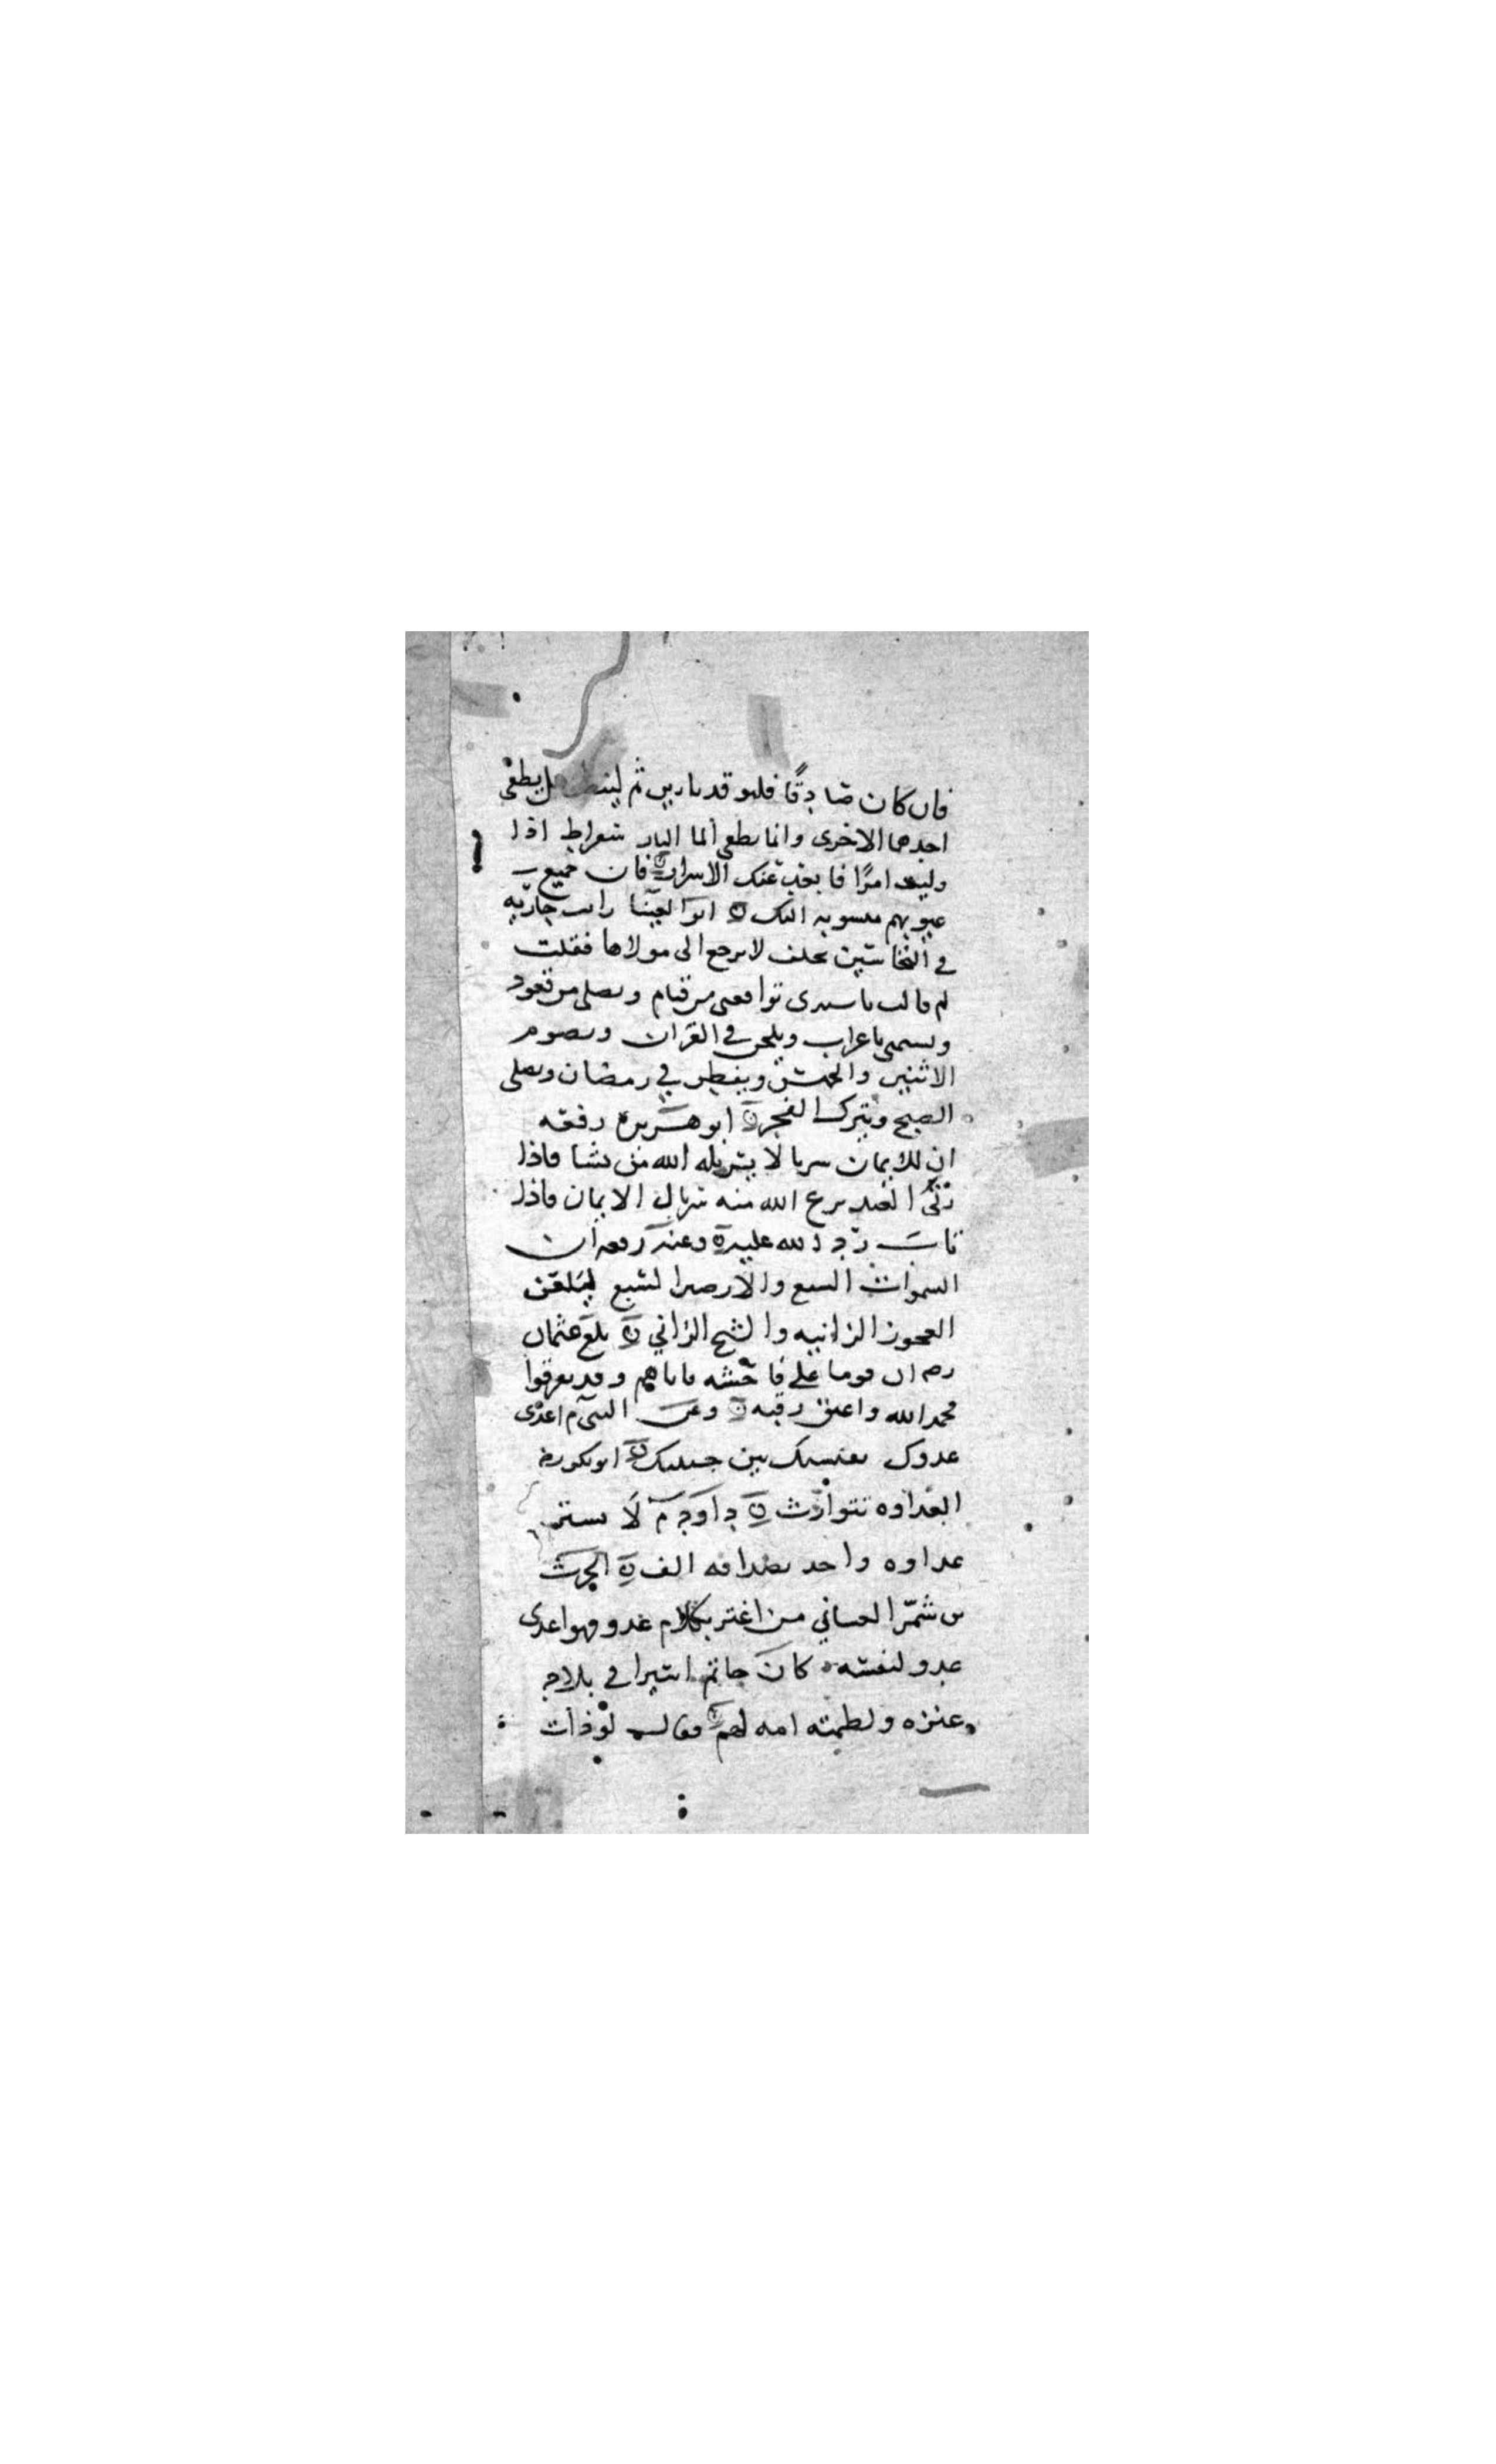 فان كان صادقا فليوقد نارين ثم لينظر هل يطفى
احدهما الاخرى وانما يطفى الما النار سقراط اذا
وليت امرا فابعد عنك الاسرار فان جميع
عيوبهم منسوبه اليك ابو العينا رايت جاريه
في النخاسين تحلف لا ترجع الى مولاها فقلت
لم قالت يا سيدى يواقعنى من قيام ويصلى من قعود
ويشتمنى باعراب ويلحن في القران ويصوم
الاثنين والخميس ويفطر في رمضان ويصلى
الضحى ويترك الفجر ابو هريرة رفعه
ان للايمان سربالا يسربله الله من يشا فاذا
زنى العبد نزع الله منه سربال الايمان فاذا
تاب رد الله عليه وعنه رفعه ان
السموات السبع والارضين السبع ليلعن
العجوز الزانيه والشيخ الزاني بلغ عثمان
رضه ان قوما على فاحشه فاتاهم وقد تفرقوا
فحمد الله واعتق رقبه وعن النبي م اعدى
عدوك نفسك بين جنبيك ابو بكر رضه
العداوه تتوارث داود م لا تستر
عداوه واحد بصداقه الف الحرث
بن شمر الغساني من اغتر بكلام عدو فهو اعدى
عدو لنفسه كان حاتم اسيرا في بلاد
عنزه ولطمته امه لهم فقال لو ذات